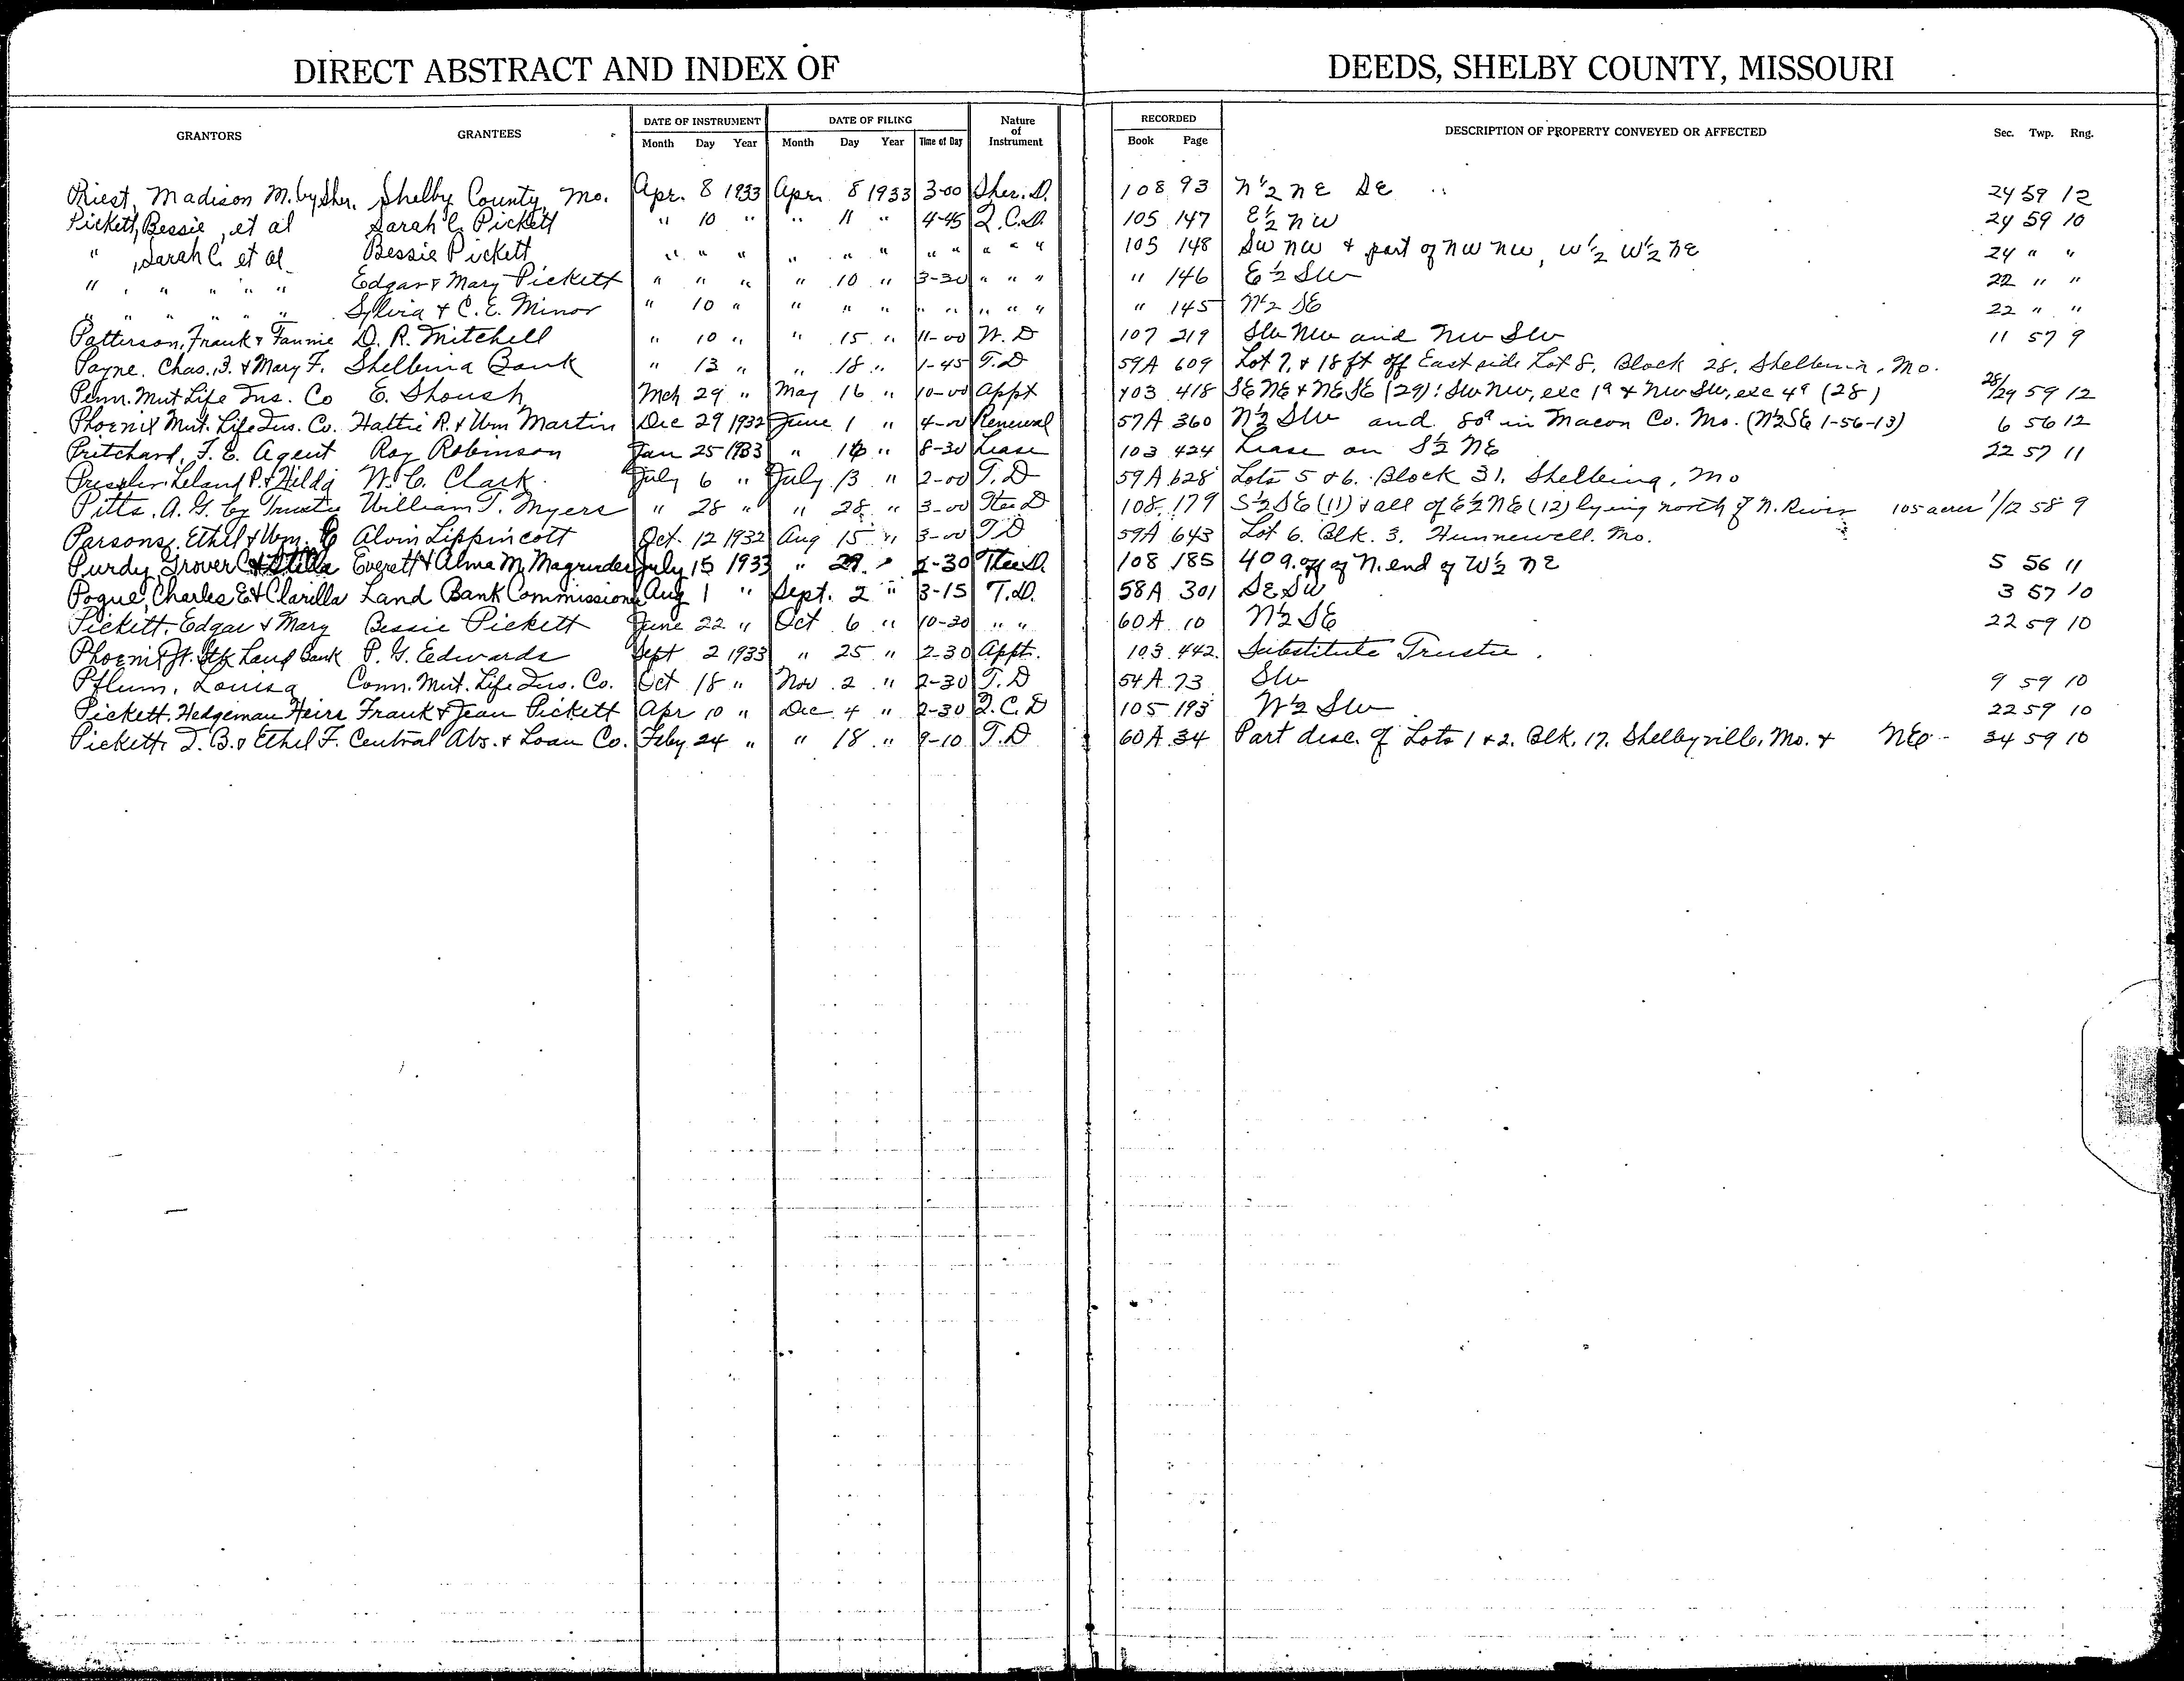 DIRECT ABSTRACT AND INDEX OF DEEDS, SHELBY COUNTY, MISSOURI
GRANTORS GRANTEES DATE OF INSTRUMENT DATE OF FILING Nature of Instrument RECORDED DESCRIPTION OF PROPERTY CONVEYED OR AFFECTED Sec. Twp. Rng.
Month Day Year Month Day Year Time of Day Book Page
Priest, Madison M. by Sher. Shelby County, Mo. Apr. 8 1933 Apr. 8 1933 3-00 Sher. D. 108 93 N½ NE SE 24 59 12
Pickett, Bessie, et al Sarah C. Pickett " 10 " " 11 " 4-45 Q.C.D. 105 147 E½ NW 24 59 10
" , Sarah C. et al Bessie Pickett " " " " " " " " " " " 105 148 SW NW & part of NW NW, W½ W½ NE 24 " "
" " " " " Edgar & Mary Pickett " " " " 10 " 3-30 " " " " 146 E½ SW 22 " "
" " " " " Sylvia & C. E. Minor " 10 " " " " " " " " " " 145 N½ SE 22 " "
Patterson, Frank & Fannie D. R. Mitchell " 10 " " 15 " 11-00 W. D 107 219 SW NW and NW SW 11 57 9
Payne, Chas. B. & Mary F. Shelbina Bank " 13 " " 18 " 1-45 T.D 59A 609 Lot 7, & 18 ft off East side Lot 8, Block 28, Shelbina, Mo.
Penn. Mut Life Ins. Co E. Shoush Mch 29 " May 16 " 10-00 Appt 103 418 SE NE & NE SE (29): SW NW, exc 1a & NW SW, exc 4a (28) 28/29 59 12
Phoenix Mut. Life Ins. Co. Hattie R. & Wm Martin Dec 29 1932 June 1 " 4-00 Renewal 57A 360 N½ SW and 80a in Macon Co. Mo. (N½SE 1-56-13) 6 56 12
Pritchard, F. E. Agent Roy Robinson Jan 25 1933 " 16 " 8-30 Lease 103 424 Lease on S½ NE 22 57 11
Pressler, Leland P. & Hilda W. C. Clark July 6 " July 13 " 2-00 T.D 59A 628 Lots 5 & 6. Block 31, Shelbina, Mo
Pitts, A. G. by Trustee William T. Myers " 28 " " 28 " 3-00 Ttee D 108 179 S½ SE (11) & all of E½ NE (12) lying north of N. River 105 acres 1/12 58 9
Parsons, Ethel & Wm. C Alvin Lippincott Oct. 12 1932 Aug 15 " 3-00 T D 59A 643 Lot 6. Blk. 3. Hunnewell. Mo.
Purdy, Grover C. & Everett & Alma M. Magruder July 15 1933 " 29 " 2-30 Ttee D. 108 185 40a. off of N. end of W½ NE 5 56 11
Pogue, Charles E & Clarilla Land Bank Commissioner Aug 1 " Sept. 2 " 3-15 T.D. 58A 301 SE SW 3 57 10
Pickett, Edgar & Mary Bessie Pickett June 22 " Oct 6 " 10-30 " " 60A 10 N½ SE 22 59 10
Phoenix Jt. Stk Land Bank P. G. Edwards Sept 2 1933 " 25 " 2-30 Appt. 103 442 Substitute Trustee.
Pflum, Louisa Conn. Mut. Life Ins. Co. Oct 18 " Nov 2 " 2-30 T. D 54A 73 SW 9 59 10
Pickett, Hedgeman Heirs Frank & Jean Pickett Apr 10 " Dec 4 " 2-30 Q.C.D 105 193 W½ SW 22 59 10
Pickett, I. B. & Ethel F. Central Abs. & Loan Co. Feby 24 " " 18 " 9-10 T.D 60A 34 Part desc. of Lots 1 & 2. Blk. 17, Shelbyville, Mo. & NE 34 59 10